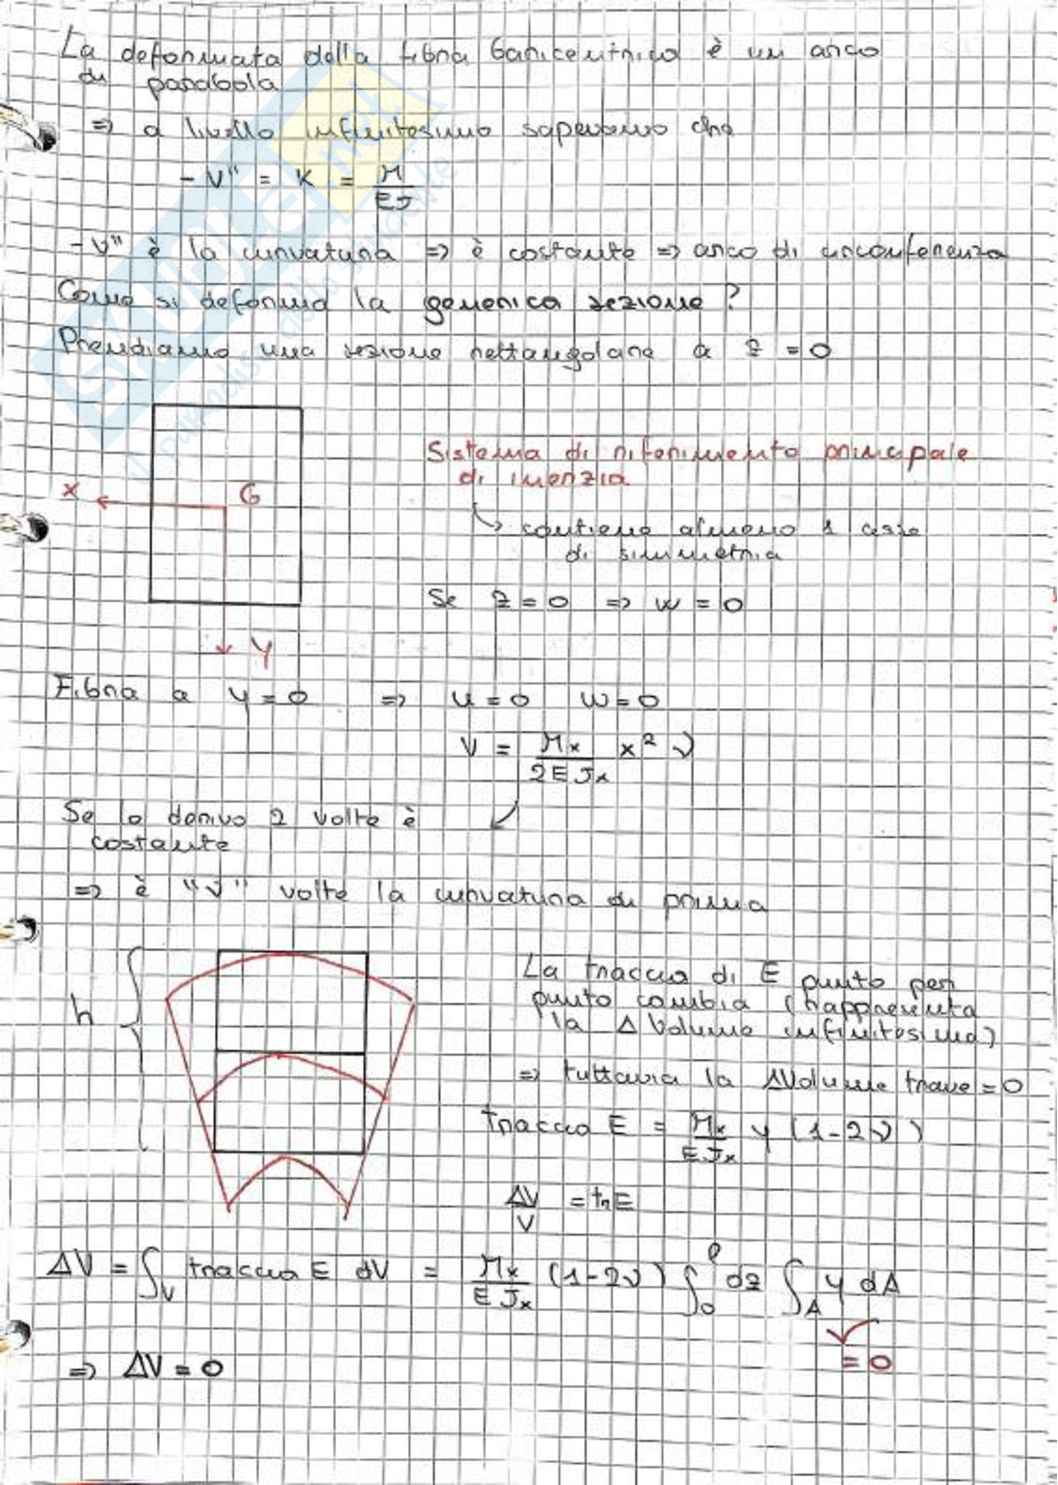 La deformata della fibra baricentrica è un arco
di parabola
=> a livello infinitesimo sapevamo che
- V" = K = M / EJ
- V" è la curvatura => è costante => arco di circonferenza
Come si deforma la generica sezione?
Prendiamo una sezione rettangolare a z = 0
Sistema di riferimento principale
di inerzia
x G
↳ contiene almeno 1 asse
di simmetria
Se z = 0 => w = 0
y
Fibra a y = 0 => u = 0 w = 0
V = Mx / 2EJx x² ν
Se lo derivo 2 volte è
costante
=> è "ν" volte la curvatura di prima
h
La traccia di E punto per
punto cambia (rappresenta
la Δ Volume infinitesima)
=> tuttavia la ΔVolume trave = 0
traccia E = Mx / EJx y (1-2ν)
ΔV / V = tr E
ΔV = ∫V traccia E dV = Mx / EJx (1-2ν) ∫0^l dz ∫A y dA
= 0
=> ΔV = 0